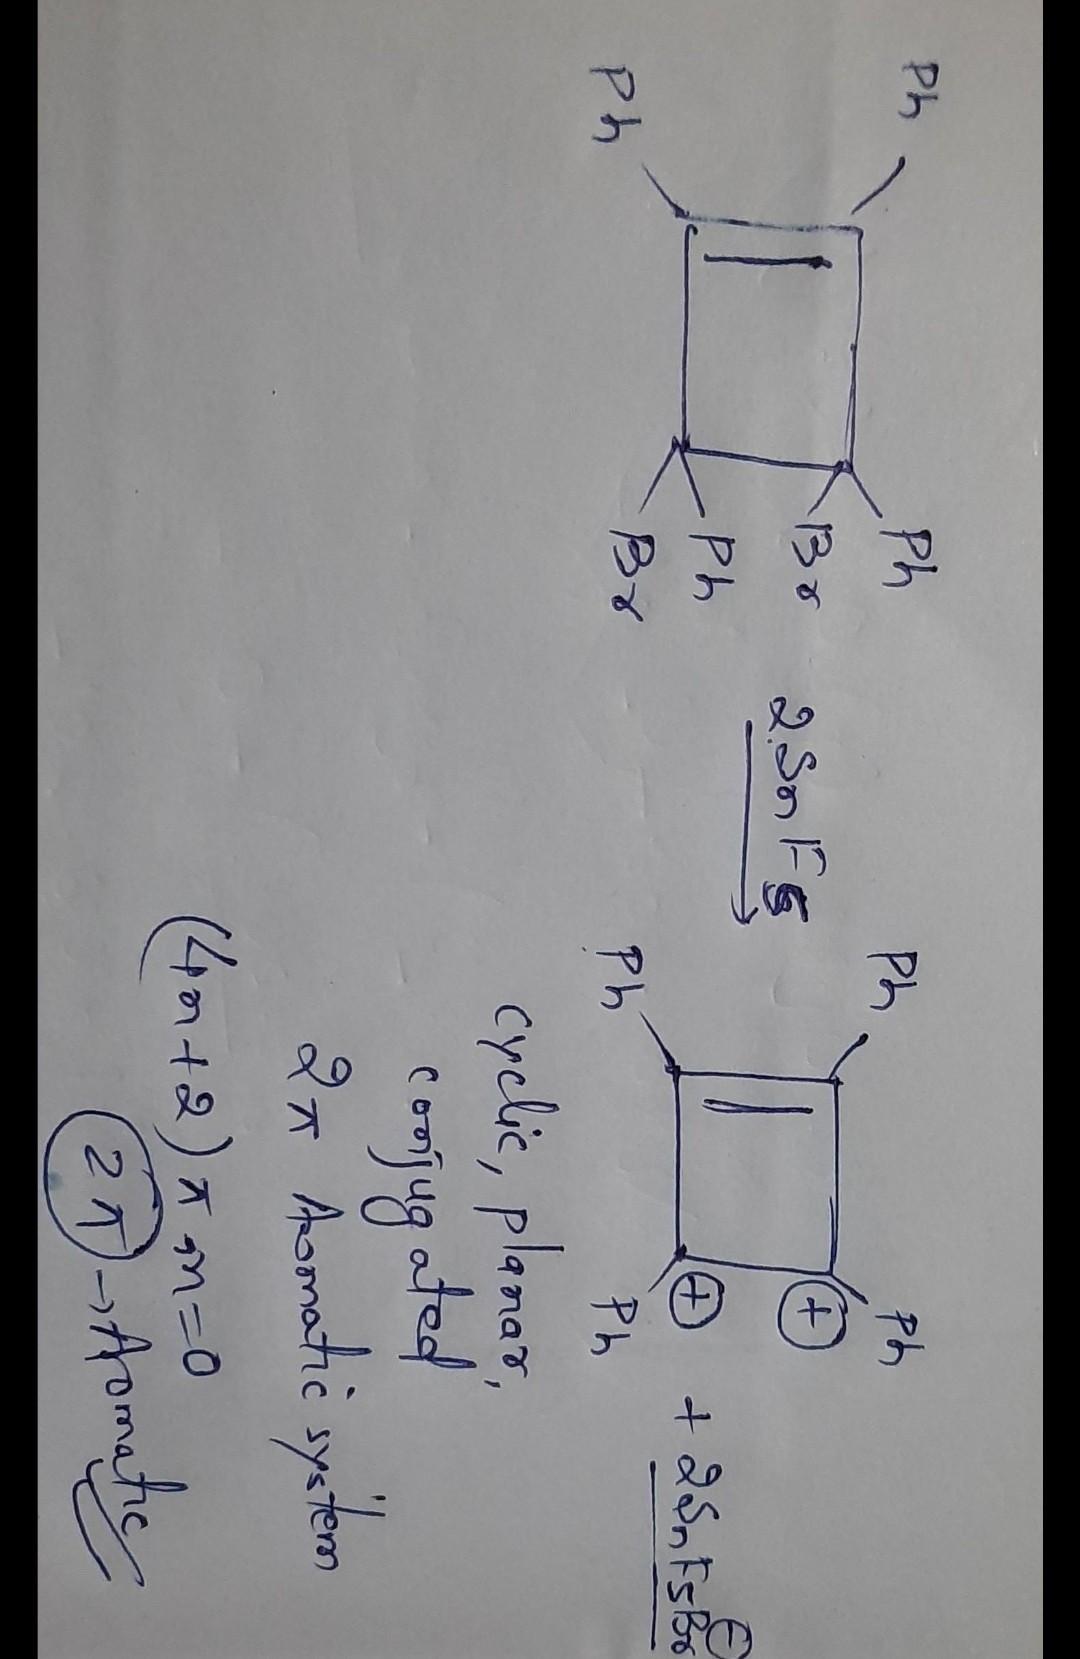 Ph Ph Ph Ph
Br
Ph
Br
2SnF5
Ph Ph
⊕
⊕
Ph Ph
+ 2SnF5Br⊖
cyclic, planar,
conjugated
2π Aromatic system
(4n+2)π n=0
2π → Aromatic